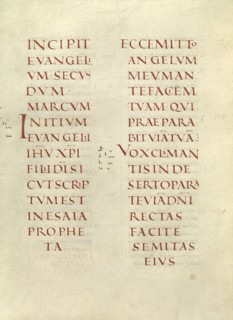 INCIPIT
EVANGELI
VM·SECVS
DVM·
MARCVM·
INITIVM
EVANGELI
IHV XPI
FILI DI SI
CVT SCRIP
TVM EST
IN ESAIA
PROPHE
TA
ECCE MITTO
ANGELVM
MEVM AN
TE FACIEM
TVAM QVI
PRAEPARA
BIT VIA TVA
VOX CLAMAN
TIS IN DE
SERTO PARA
TE VIA DNI
RECTAS
FACITE
SEMITAS
EIVS